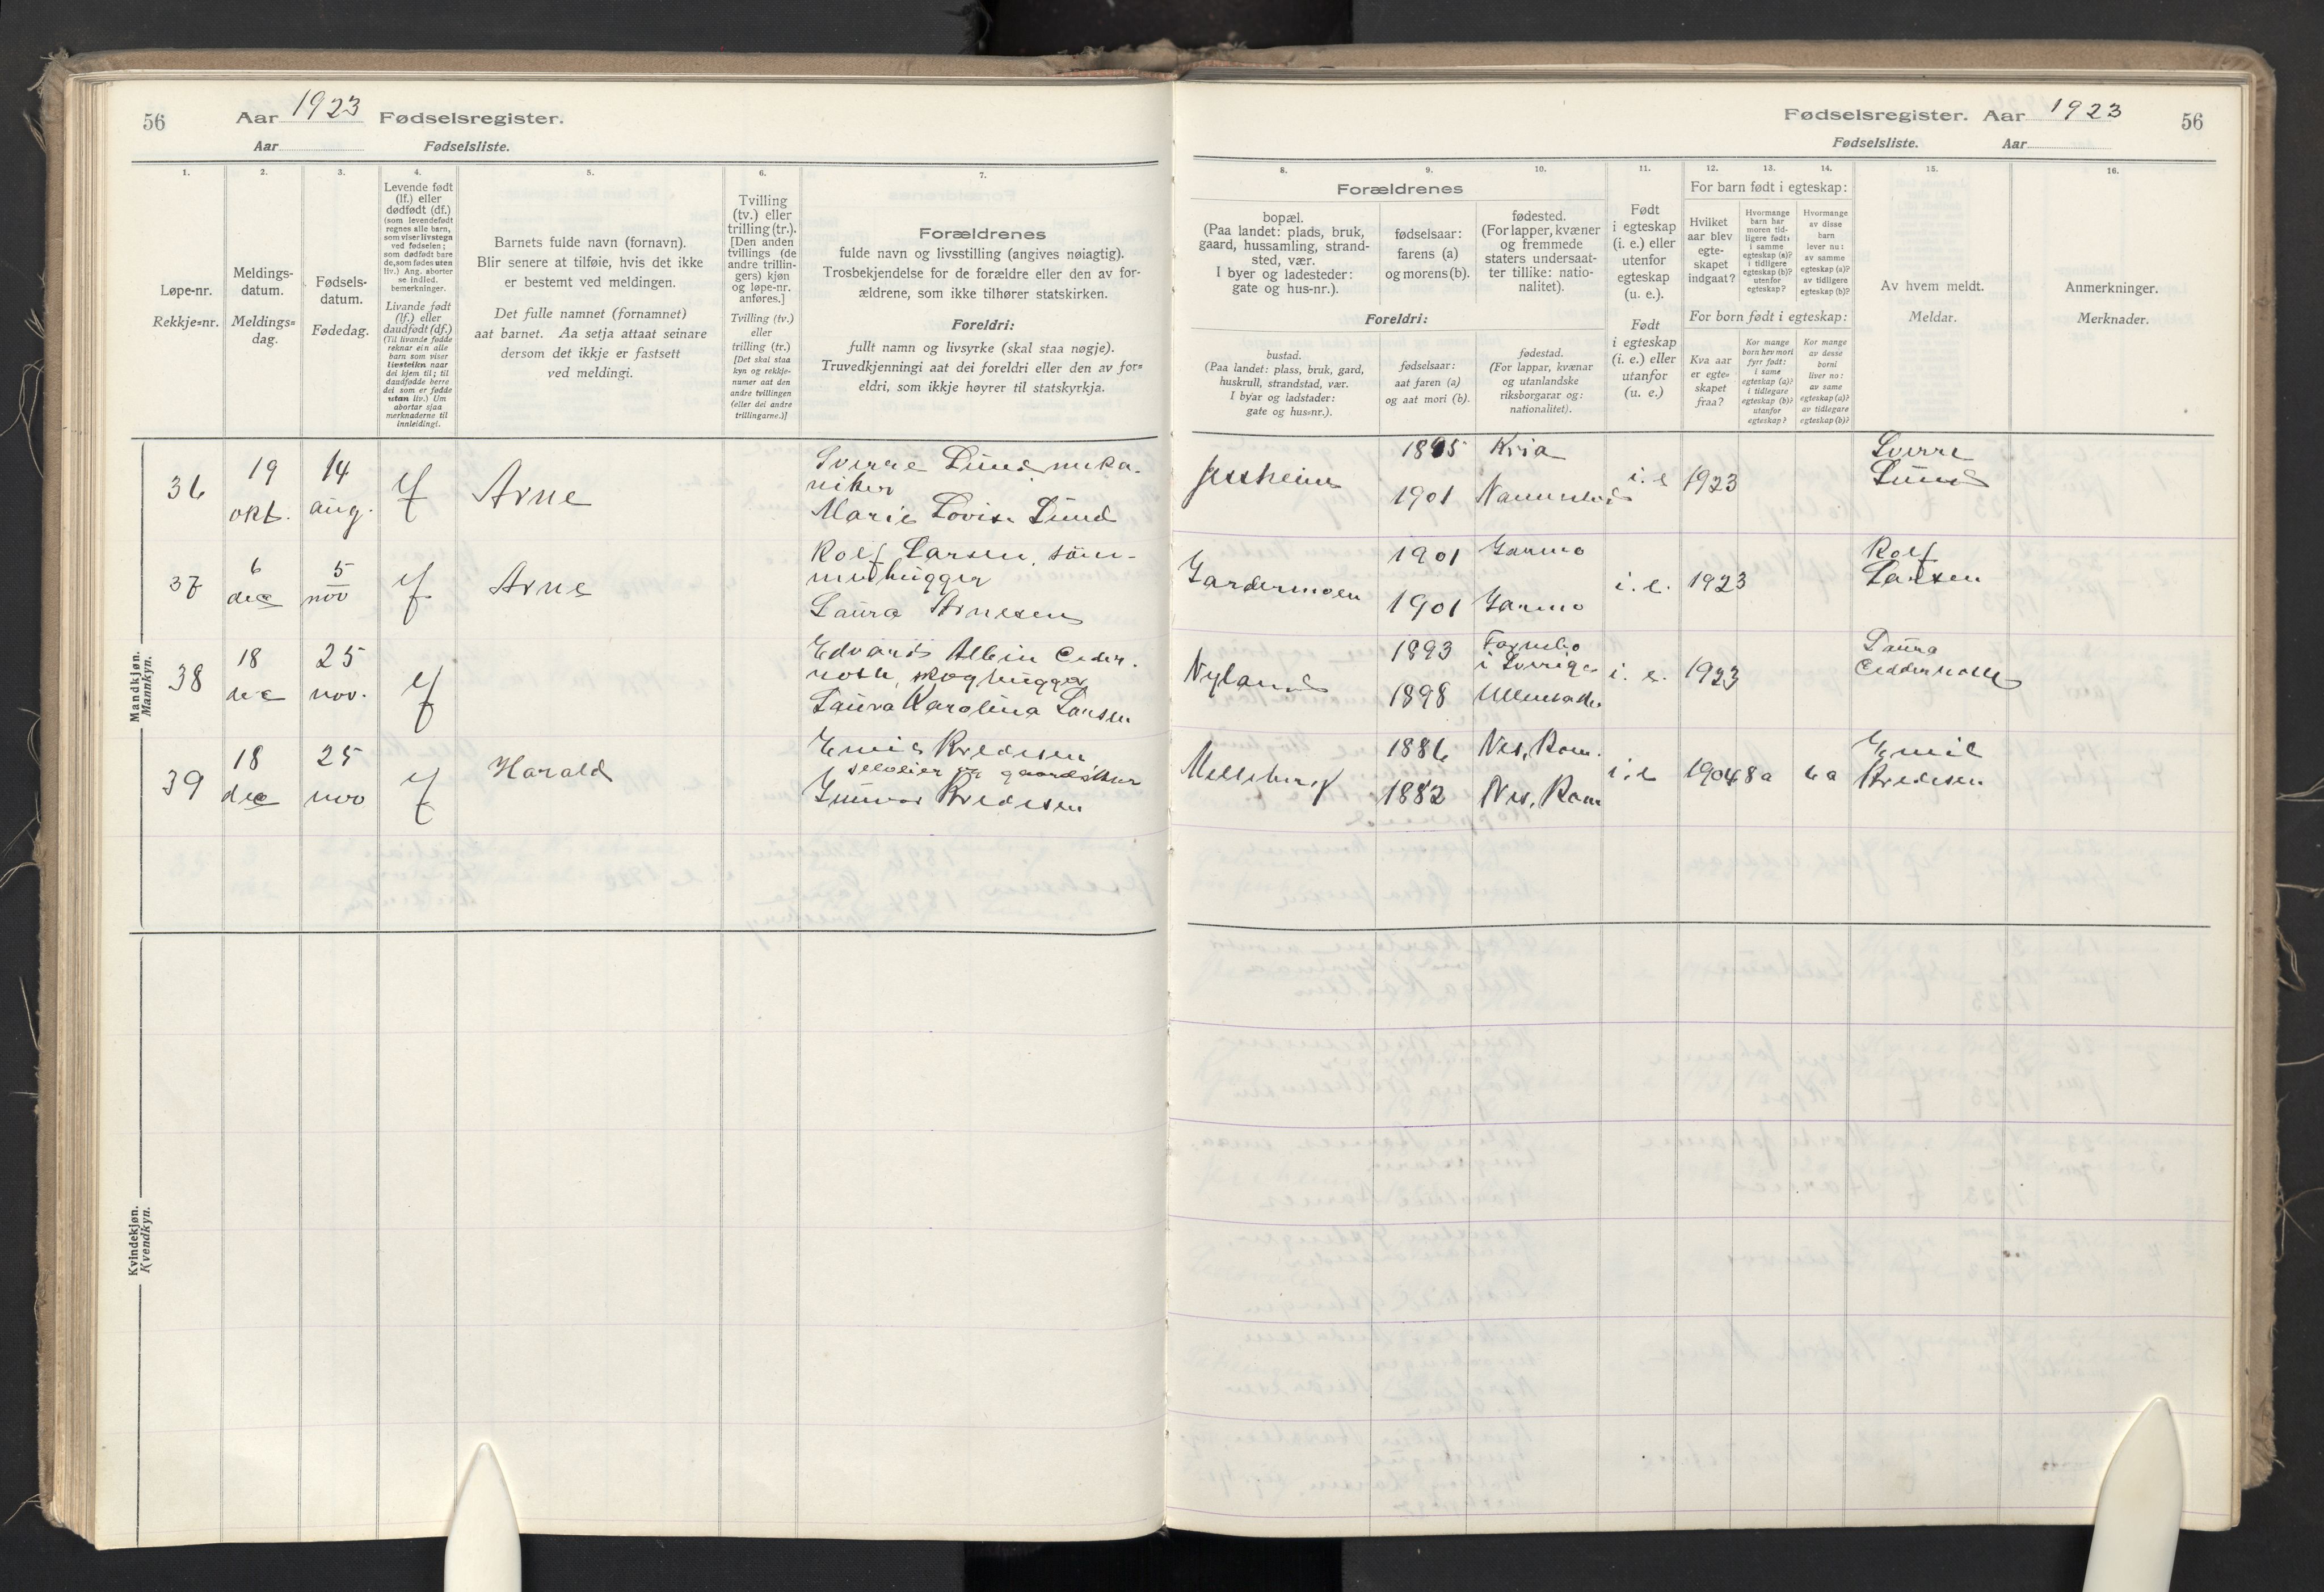 56
Aar 1923 Fødselsregister.
Aar Fødselsliste.
1.
2.
3.
4.
5.
6.
7.
Løpe-nr.
Rekkje=nr.
Meldings-
datum.
Meldings=
dag.
Fødsels-
datum.
Fødedag.
Levende født
(lf.) eller
dødfødt (df.)
(som levendefødt
regnes alle barn,
som viser livstegn
ved fødselen;
som dødfødt bare
de, som fødes uten
liv.) Ang. aborter
se indled.
bemerkninger.
Livande født
(lf.) eller
daudfødt (df.)
(Til livande fødde
reknar ein alle
barn som viser
livsteikn naar
dei kjem til; til
daudfødde berre
dei som er fødde
utan liv.) Um
abortar sjaa
merknaderne til
innleidingi.
Barnets fulde navn (fornavn).
Blir senere at tilføie, hvis det ikke
er bestemt ved meldingen.
Det fulle namnet (fornamnet)
aat barnet. Aa setja attaat seinare
dersom det ikkje er fastsett
ved meldingi.
Tvilling
(tv.) eller
trilling (tr.).
[Den anden
tvillings (de
andre trillin-
gers) kjøn
og løpe-nr.
anføres.]
Tvilling (tv.)
eller
trilling (tr.)
[Det skal staa
kyn og rekkje-
numer aat den
andre tvillingen
(eller dei andre
trillingarne.)]
Forældrenes
fulde navn og livsstilling (angives nøiagtig).
Trosbekjendelse for de forældre eller den av for-
ældrene, som ikke tilhører statskirken.
Foreldri:
fullt namn og livsyrke (skal staa nøgje).
Truvedkjenningi aat dei foreldri eller den av for=
eldri, som ikkje høyrer til statskyrkja.
Mandkjøn.
Mannkyn.
36
19
okt.
14
aug.
lf
Arne
Sverre Lund meka-
niker
Marie Lovise Lund
37
6
dec
5
nov
lf
Arne
Rolf Larsen, tøm-
merhugger
Laura Arnesen
38
18
dec
25
nov.
lf
Edvard Albin Ceder-
, skoghugger
Laura Karolina Larsen
39
18
dec
25
nov
lf
Harald
Emil Bredesen
selveier og gaardbruker
Gunvor Bredesen
Kvindekjøn.
Kvendkyn.
Fødselsregister. Aar 1923
56
Fødselsliste. Aar
8.
9.
10.
11.
12.
13.
14.
15.
16.
Forældrenes
bopæl.
(Paa landet: plads, bruk,
gaard, hussamling, strand-
sted, vær.
I byer og ladesteder:
gate og hus-nr.).
fødselsaar:
farens (a)
og morens (b).
fødested.
(For lapper, kvæner
og fremmede
staters undersaat-
ter tillike: natio-
nalitet).
Foreldri:
bustad.
(Paa landet: plass, bruk, gard,
huskrull, strandstad, vær.
I byar og ladstader:
gate og hus=nr.).
fødselsaar:
aat faren (a)
og aat mori (b).
fødestad.
(For lappar, kvænar
og utanlandske
riksborgarar og:
nationalitet).
Født
i egteskap
(i. e.) eller
utenfor
egteskap
(u. e.).
Født
i egteskap
(i. e.) eller
utanfor
(u. e.)
For barn født i egteskap:
Hvilket
aar blev
egte-
skapet
indgaat?
Hvormange
barn har
moren tid-
ligere født:
i samme
egteskap (a)?
i tidligere
egteskap (b)?
utenfor
egteskap?
Hvormange
av disse
barn
lever nu:
av samme
egteskap (a)?
av tidligere
egteskap (b)?
For born født i egteskap:
Kva aar
er egte=
skapet
fraa?
Kor mange
born hev mori
fyrr født:
i same
egteskap (a)?
i tidlegare
egteskap (b)?
utanfor
egteskap?
Kor mange
av desse
borni
liver no:
av same
egteskap (a)?
av tidlegare
egteskap (b)?
Av hvem meldt.
Meldar.
Anmerkninger.
Merknader.
Jessheim
1895
Kria
1901
Nannestad
i. e
1923
Sverre
Lund
Gardermoen
1901
Garmo
1901
Garmo
i. e.
1923
Rolf
Larsen
Nyland
1893
i Sverige
1898
Ullensaker
i. e.
1923
Laura
1886
Nes, Rom.
1882
Nes, Rom
i. e
1904
8a
6a
Emil
Bredesen